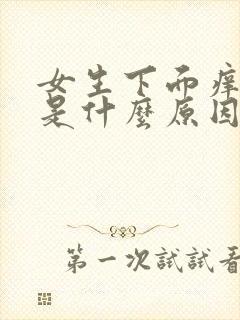 女生下面痒
是什麼原因
第一次試試看